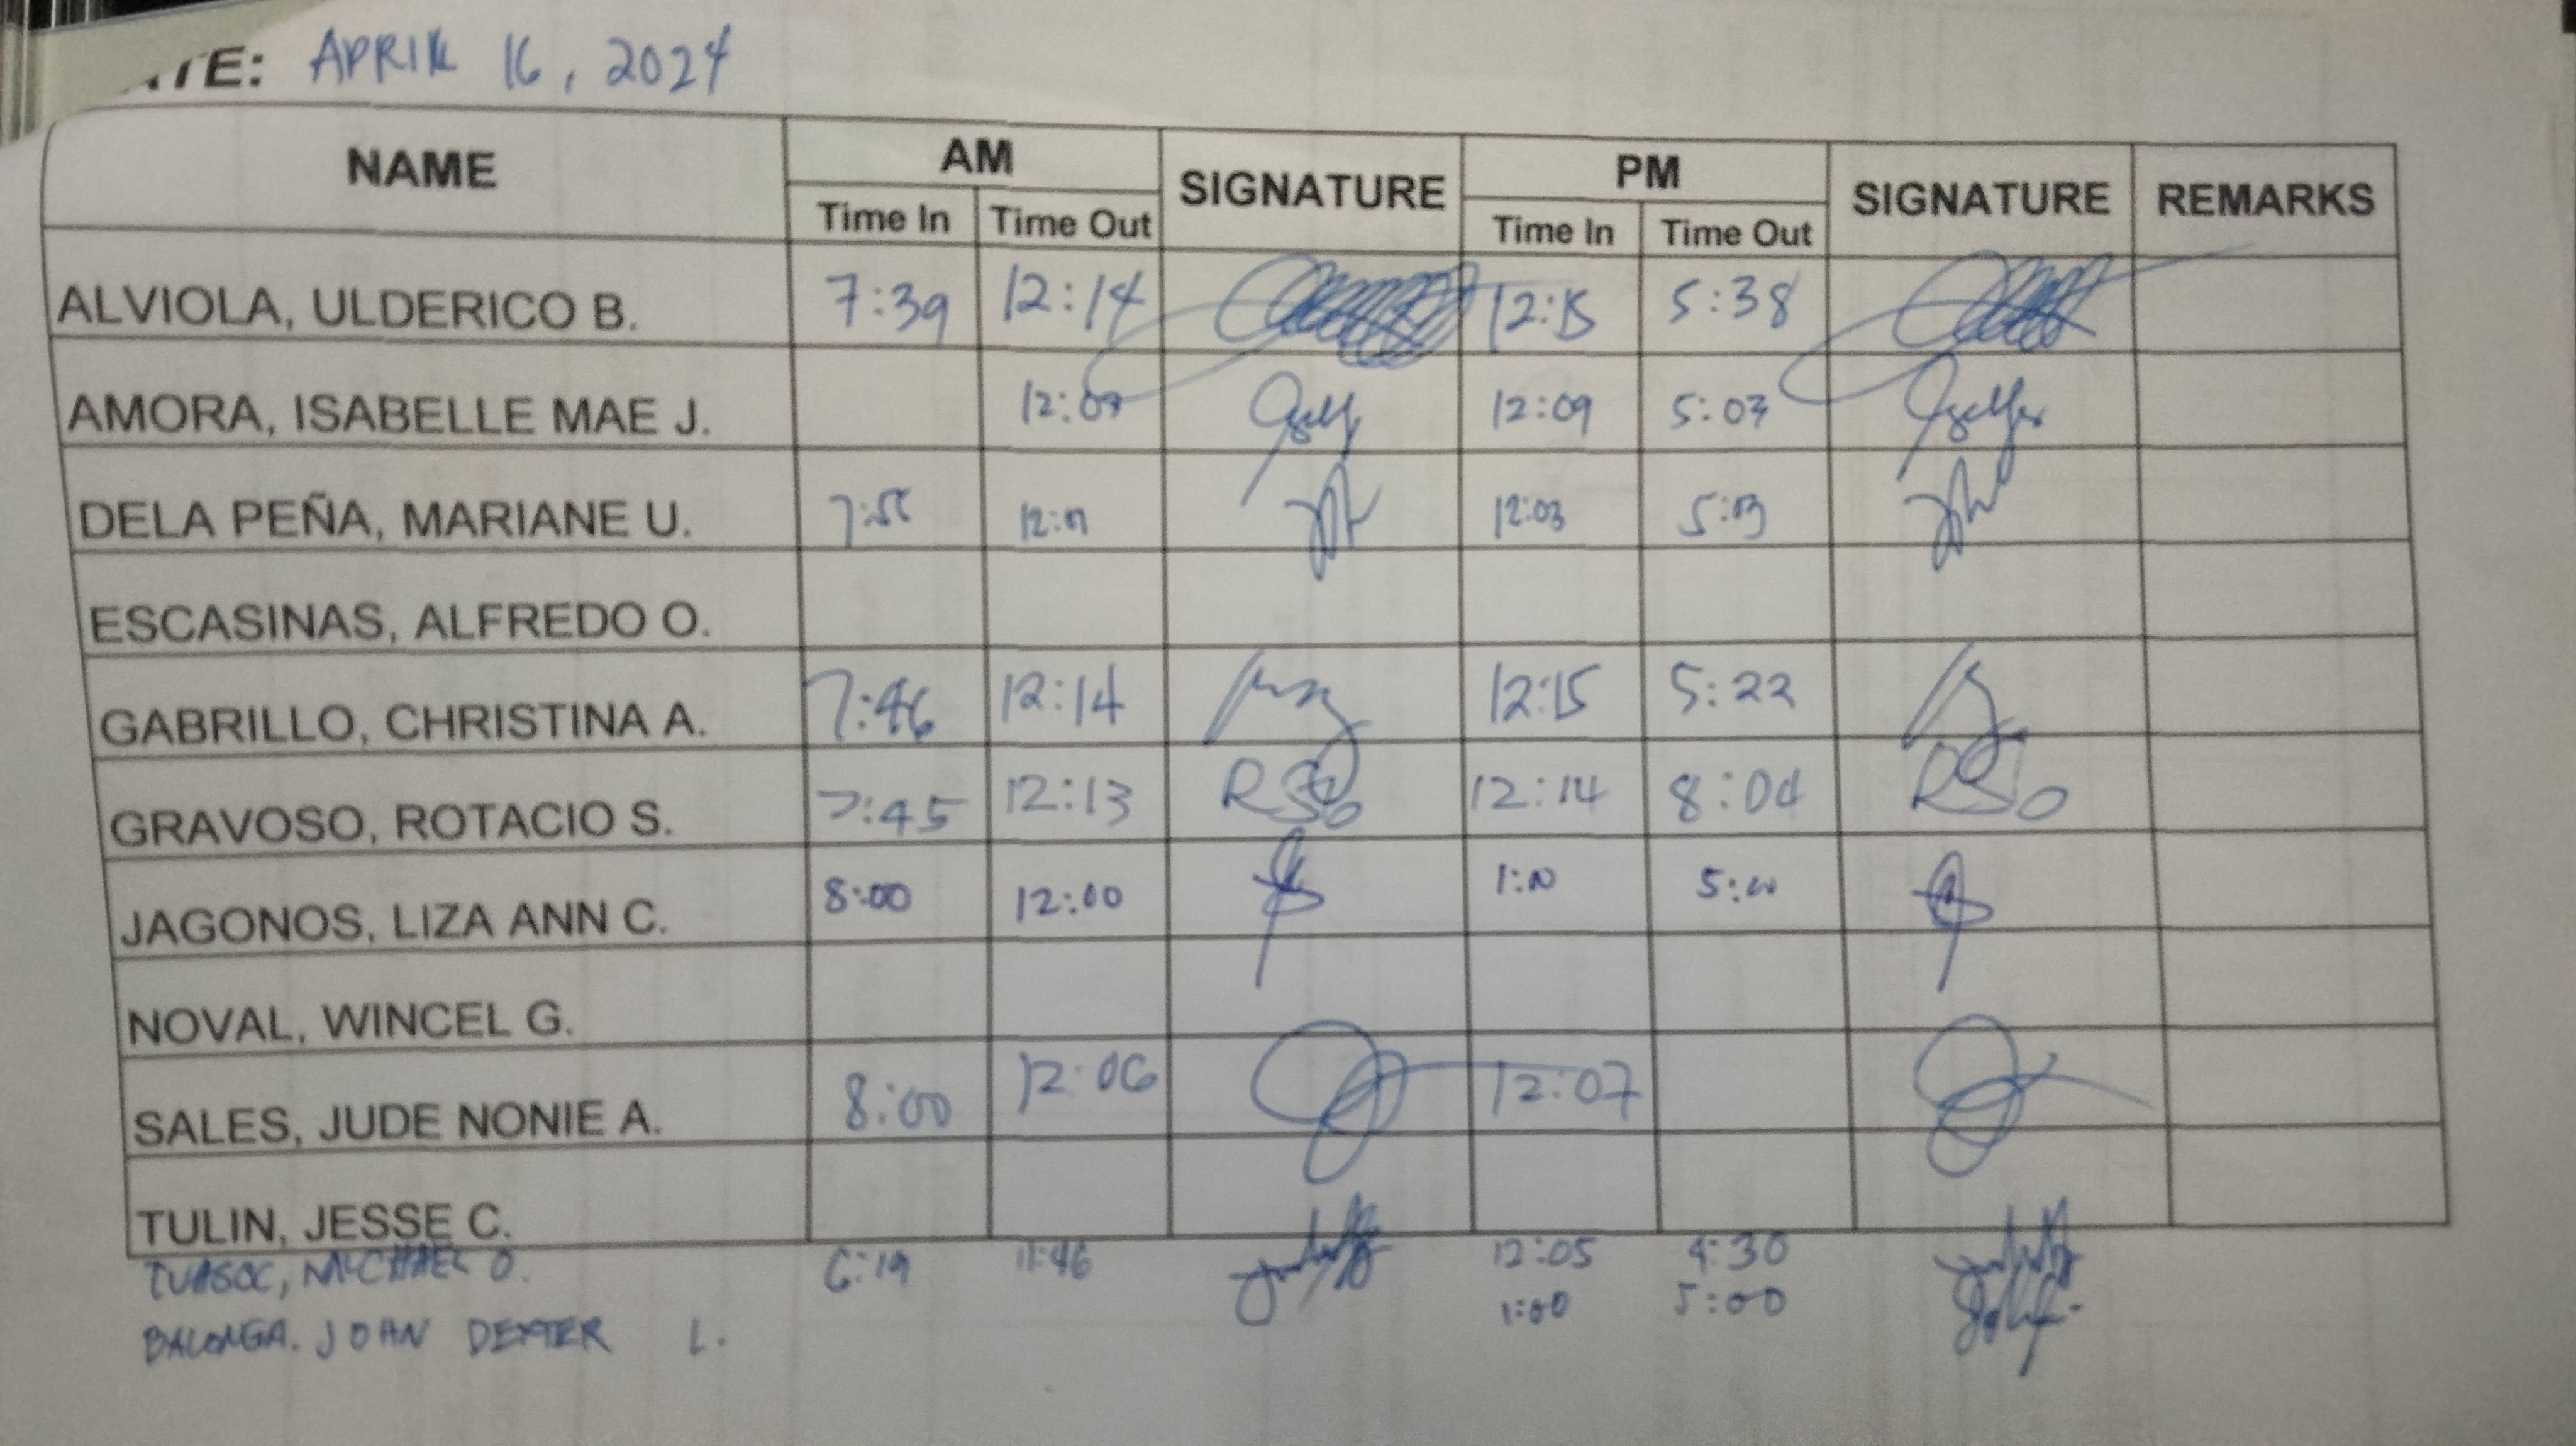 DATE: APRIL 16, 2024
NAME AM SIGNATURE PM SIGNATURE REMARKS
Time In Time Out Time In Time Out
ALVIOLA, ULDERICO B. 7:39 12:14 12:15 5:38
AMORA, ISABELLE MAE J. 12:09 5:03
DELA PEÑA, MARIANE U. 12:03 5:03
ESCASINAS, ALFREDO O.
GABRILLO, CHRISTINA A. 7:46 12:14 12:15 5:22
GRAVOSO, ROTACIO S. 7:45 12:13 RSG 12:14 8:04 RSG
JAGONOS, LIZA ANN C. 8:00 12:00 1:00 5:00
NOVAL, WINCEL G.
SALES, JUDE NONIE A. 8:00 12:06 12:07
TULIN, JESSE C.
MICHAEL O. 6:19 11:46 12:05 4:30
BALONGA. JOHN DEXTER L. 1:00 5:00